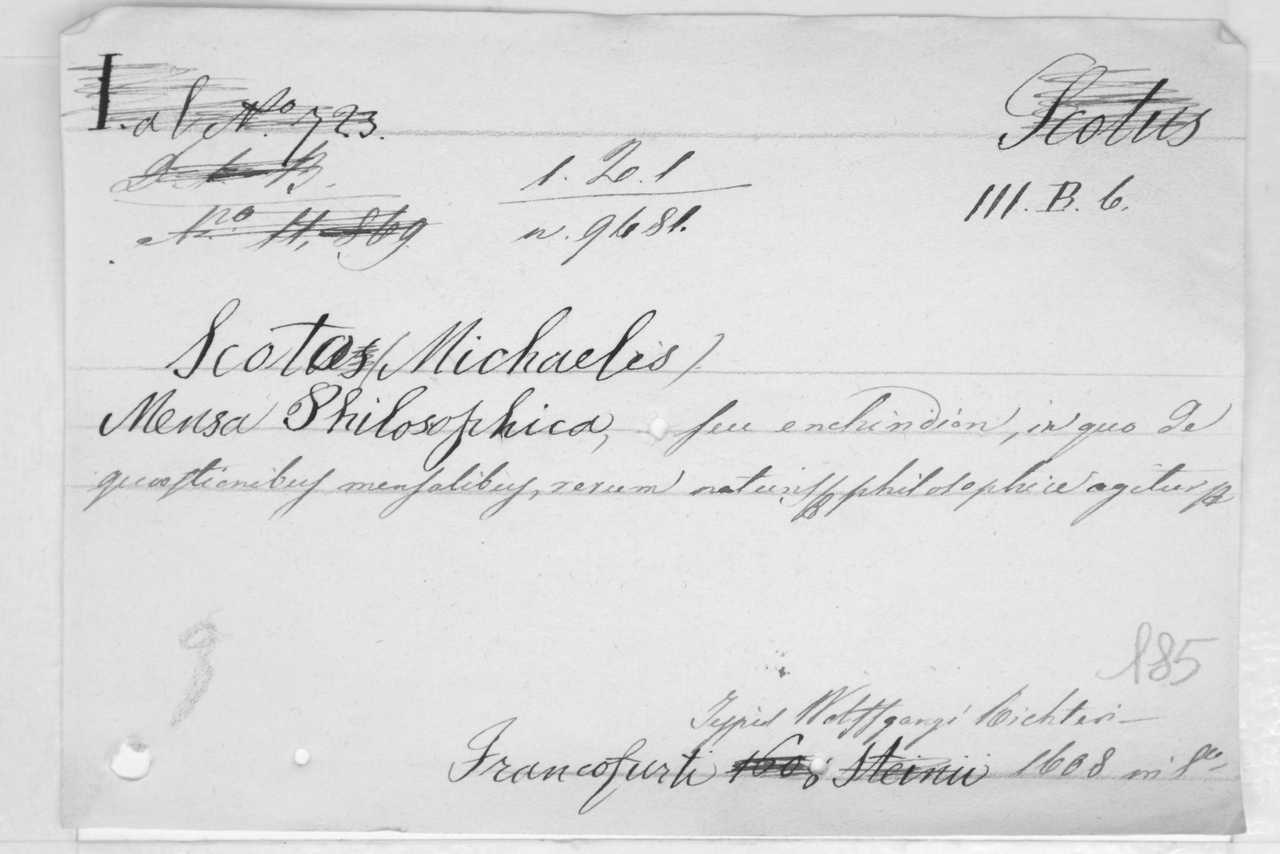 I. a b No. 723.
Scotus
1. Z. 1
III. B. 6.
No. 11,869
n. 9681.
Scotus (Michaelis)
Mensa Philosophica, seu enchiridion, in quo de
quaestionibus mensalibus, rerum naturis philosophice agitur
185
Typis Wolffgangi Richteri
Francofurti 1608 Steinii 1608 in 8vo